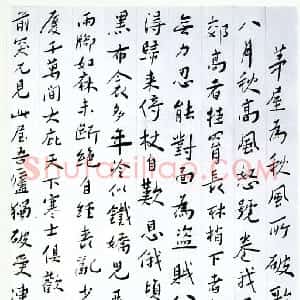 茅屋為秋風所破歌
八月秋高風怒號卷我
郊高者挂罥長林梢下者
無力忍能對面為盜賊公
得歸來倚杖自歎息俄頃
黑布衾多年冷似鐵嬌兒惡
雨腳如麻未斷絕自經喪亂少
廈千萬間大庇天下寒士俱歡
前突兀見此屋吾廬獨破受凍